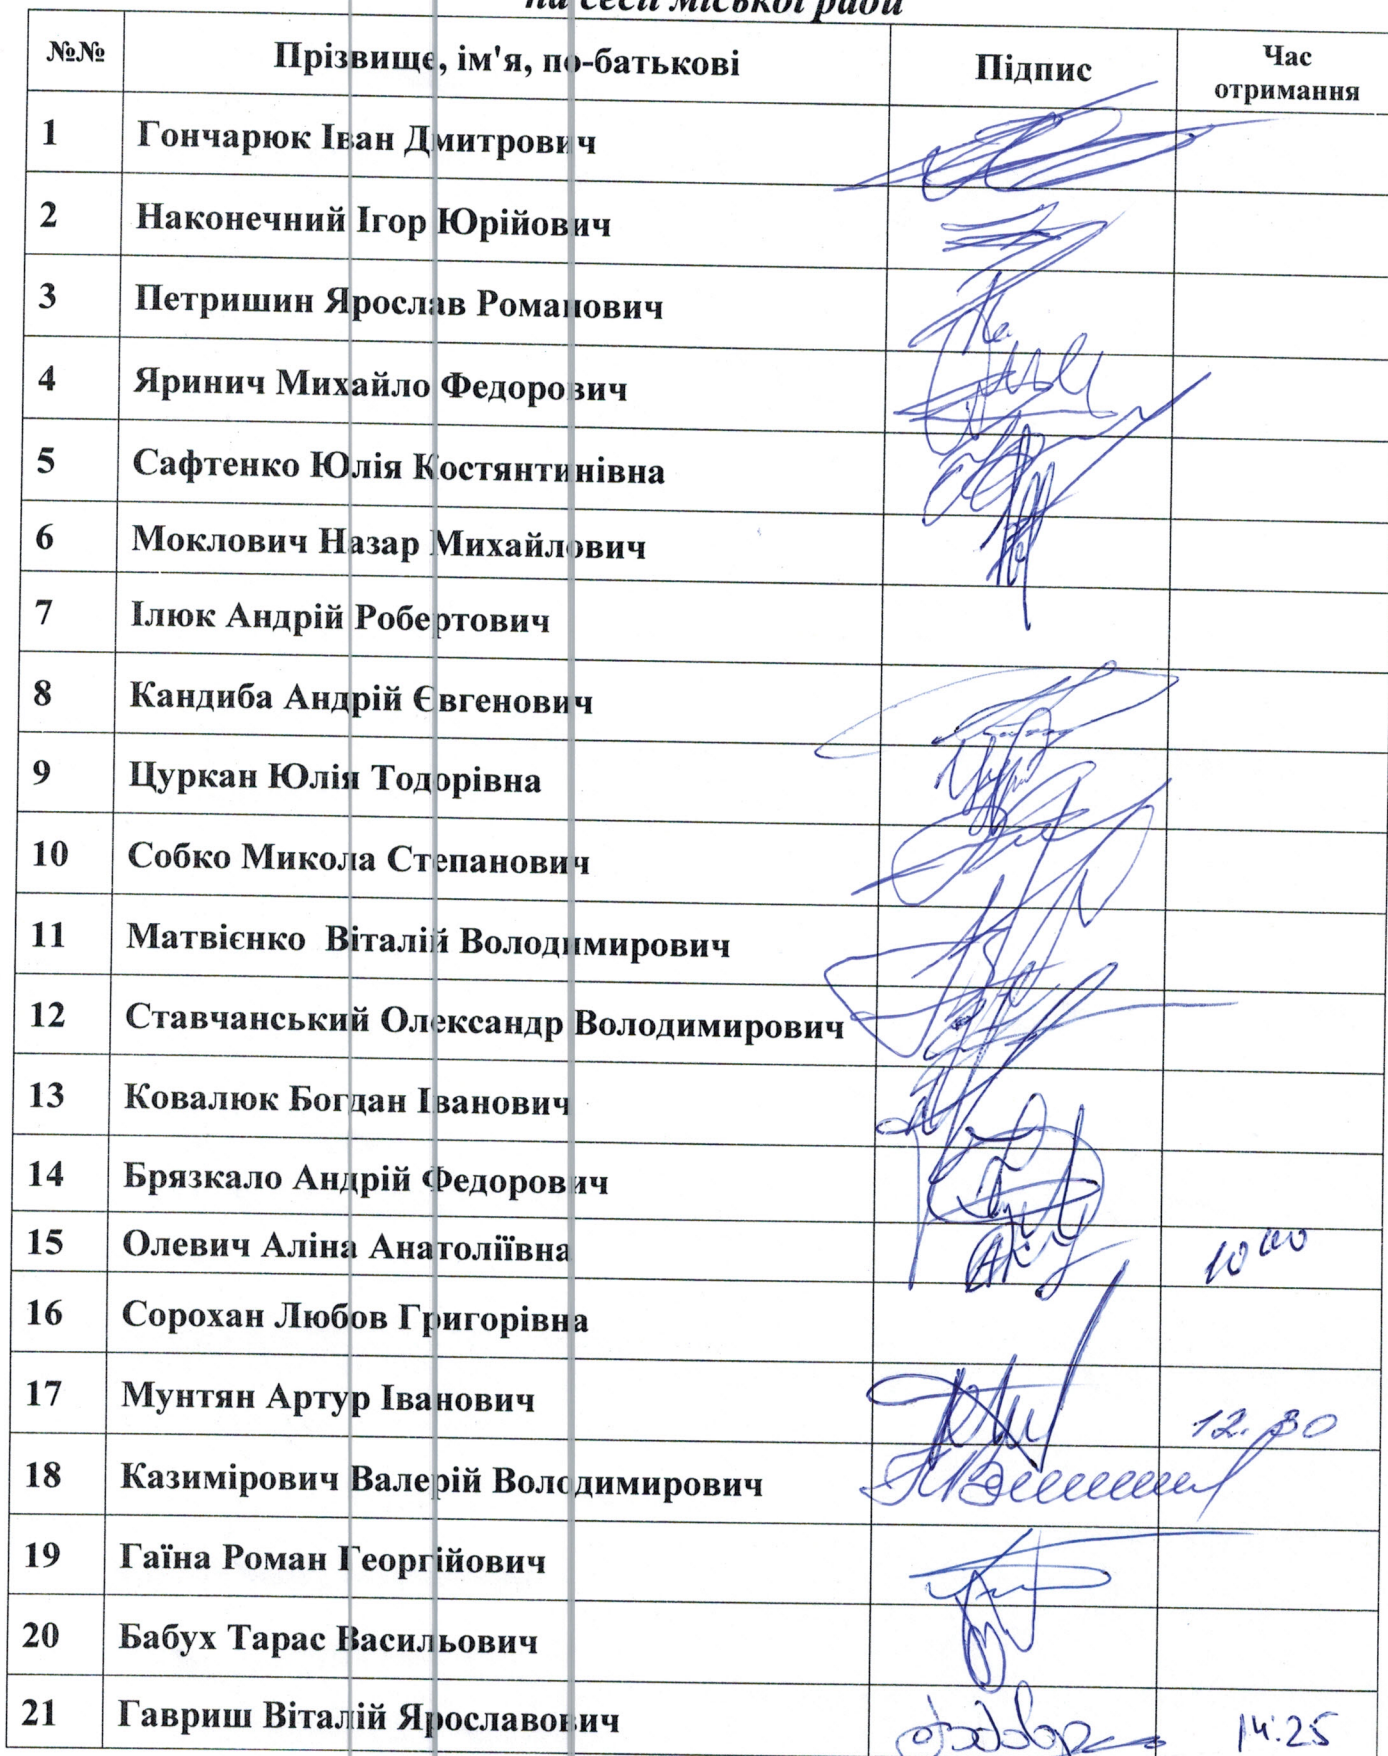 на сесії міської ради
№№ Прізвище, ім'я, по-батькові Підпис Час отримання
1 Гончарюк Іван Дмитрович
2 Наконечний Ігор Юрійович
3 Петришин Ярослав Романович
4 Яринич Михайло Федорович
5 Сафтенко Юлія Костянтинівна
6 Моклович Назар Михайлович
7 Ілюк Андрій Робертович
8 Кандиба Андрій Євгенович
9 Цуркан Юлія Тодорівна
10 Собко Микола Степанович
11 Матвієнко Віталій Володимирович
12 Ставчанський Олександр Володимирович
13 Ковалюк Богдан Іванович
14 Брязкало Андрій Федорович
15 Олевич Аліна Анатоліївна 10 00
16 Сорохан Любов Григорівна
17 Мунтян Артур Іванович 12.30
18 Казимірович Валерій Володимирович
19 Гаїна Роман Георгійович
20 Бабух Тарас Васильович
21 Гавриш Віталій Ярославович 14:25